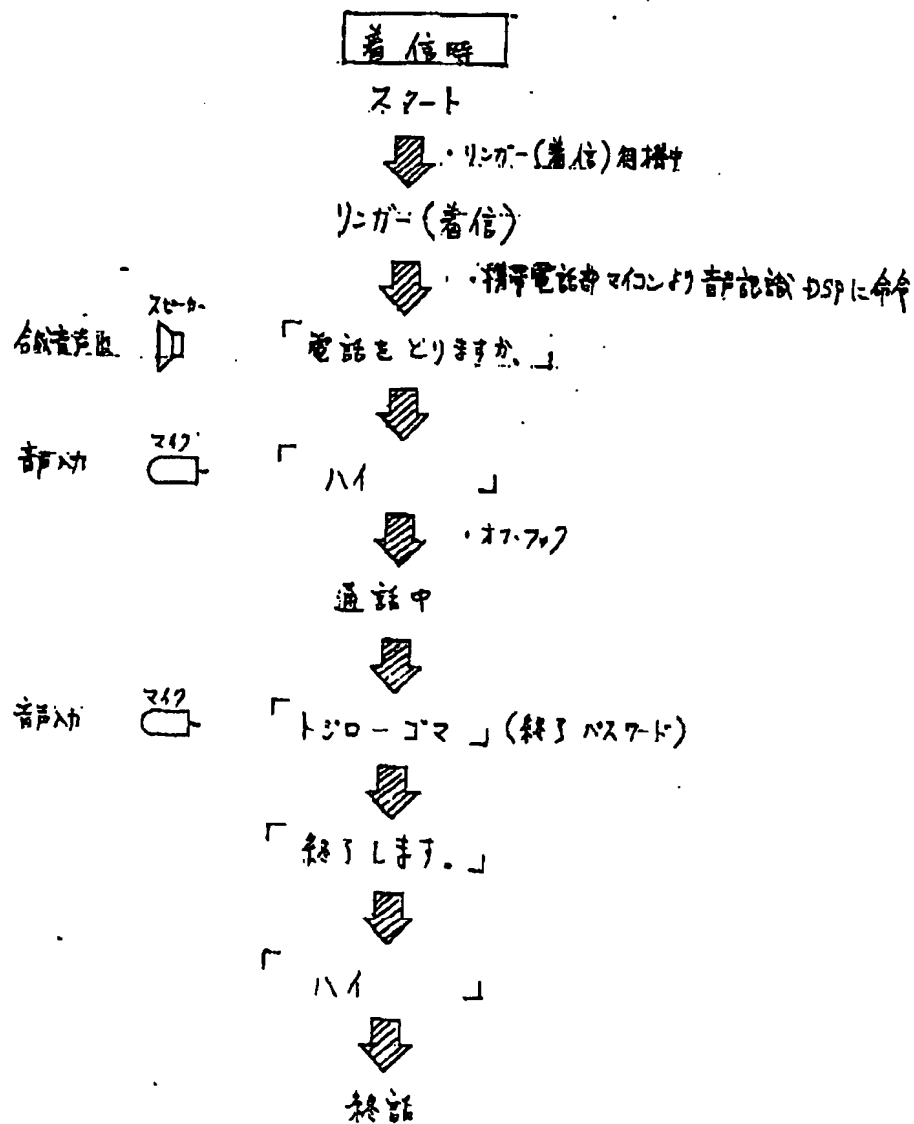 着信時
スタート
・リンガー(着信)待機中
リンガー(着信)
・携帯電話部マイコンより音声認識DSPに命令
スピーカー
「電話をとりますか。」
マイク
音声入力
「ハイ」
・オフ・フック
通話中
マイク
音声入力
「トジローゴマ」(終了パスワード)
「終了します。」
「ハイ」
終話